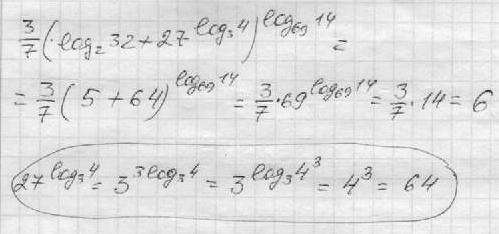 3/7 (log₂ 32 + 27^(log₃ 4))^(log₆₉ 14) =
= 3/7 (5 + 64)^(log₆₉ 14) = 3/7 · 69^(log₆₉ 14) = 3/7 · 14 = 6
27^(log₃ 4) = 3^(3 log₃ 4) = 3^(log₃ 4³) = 4³ = 64